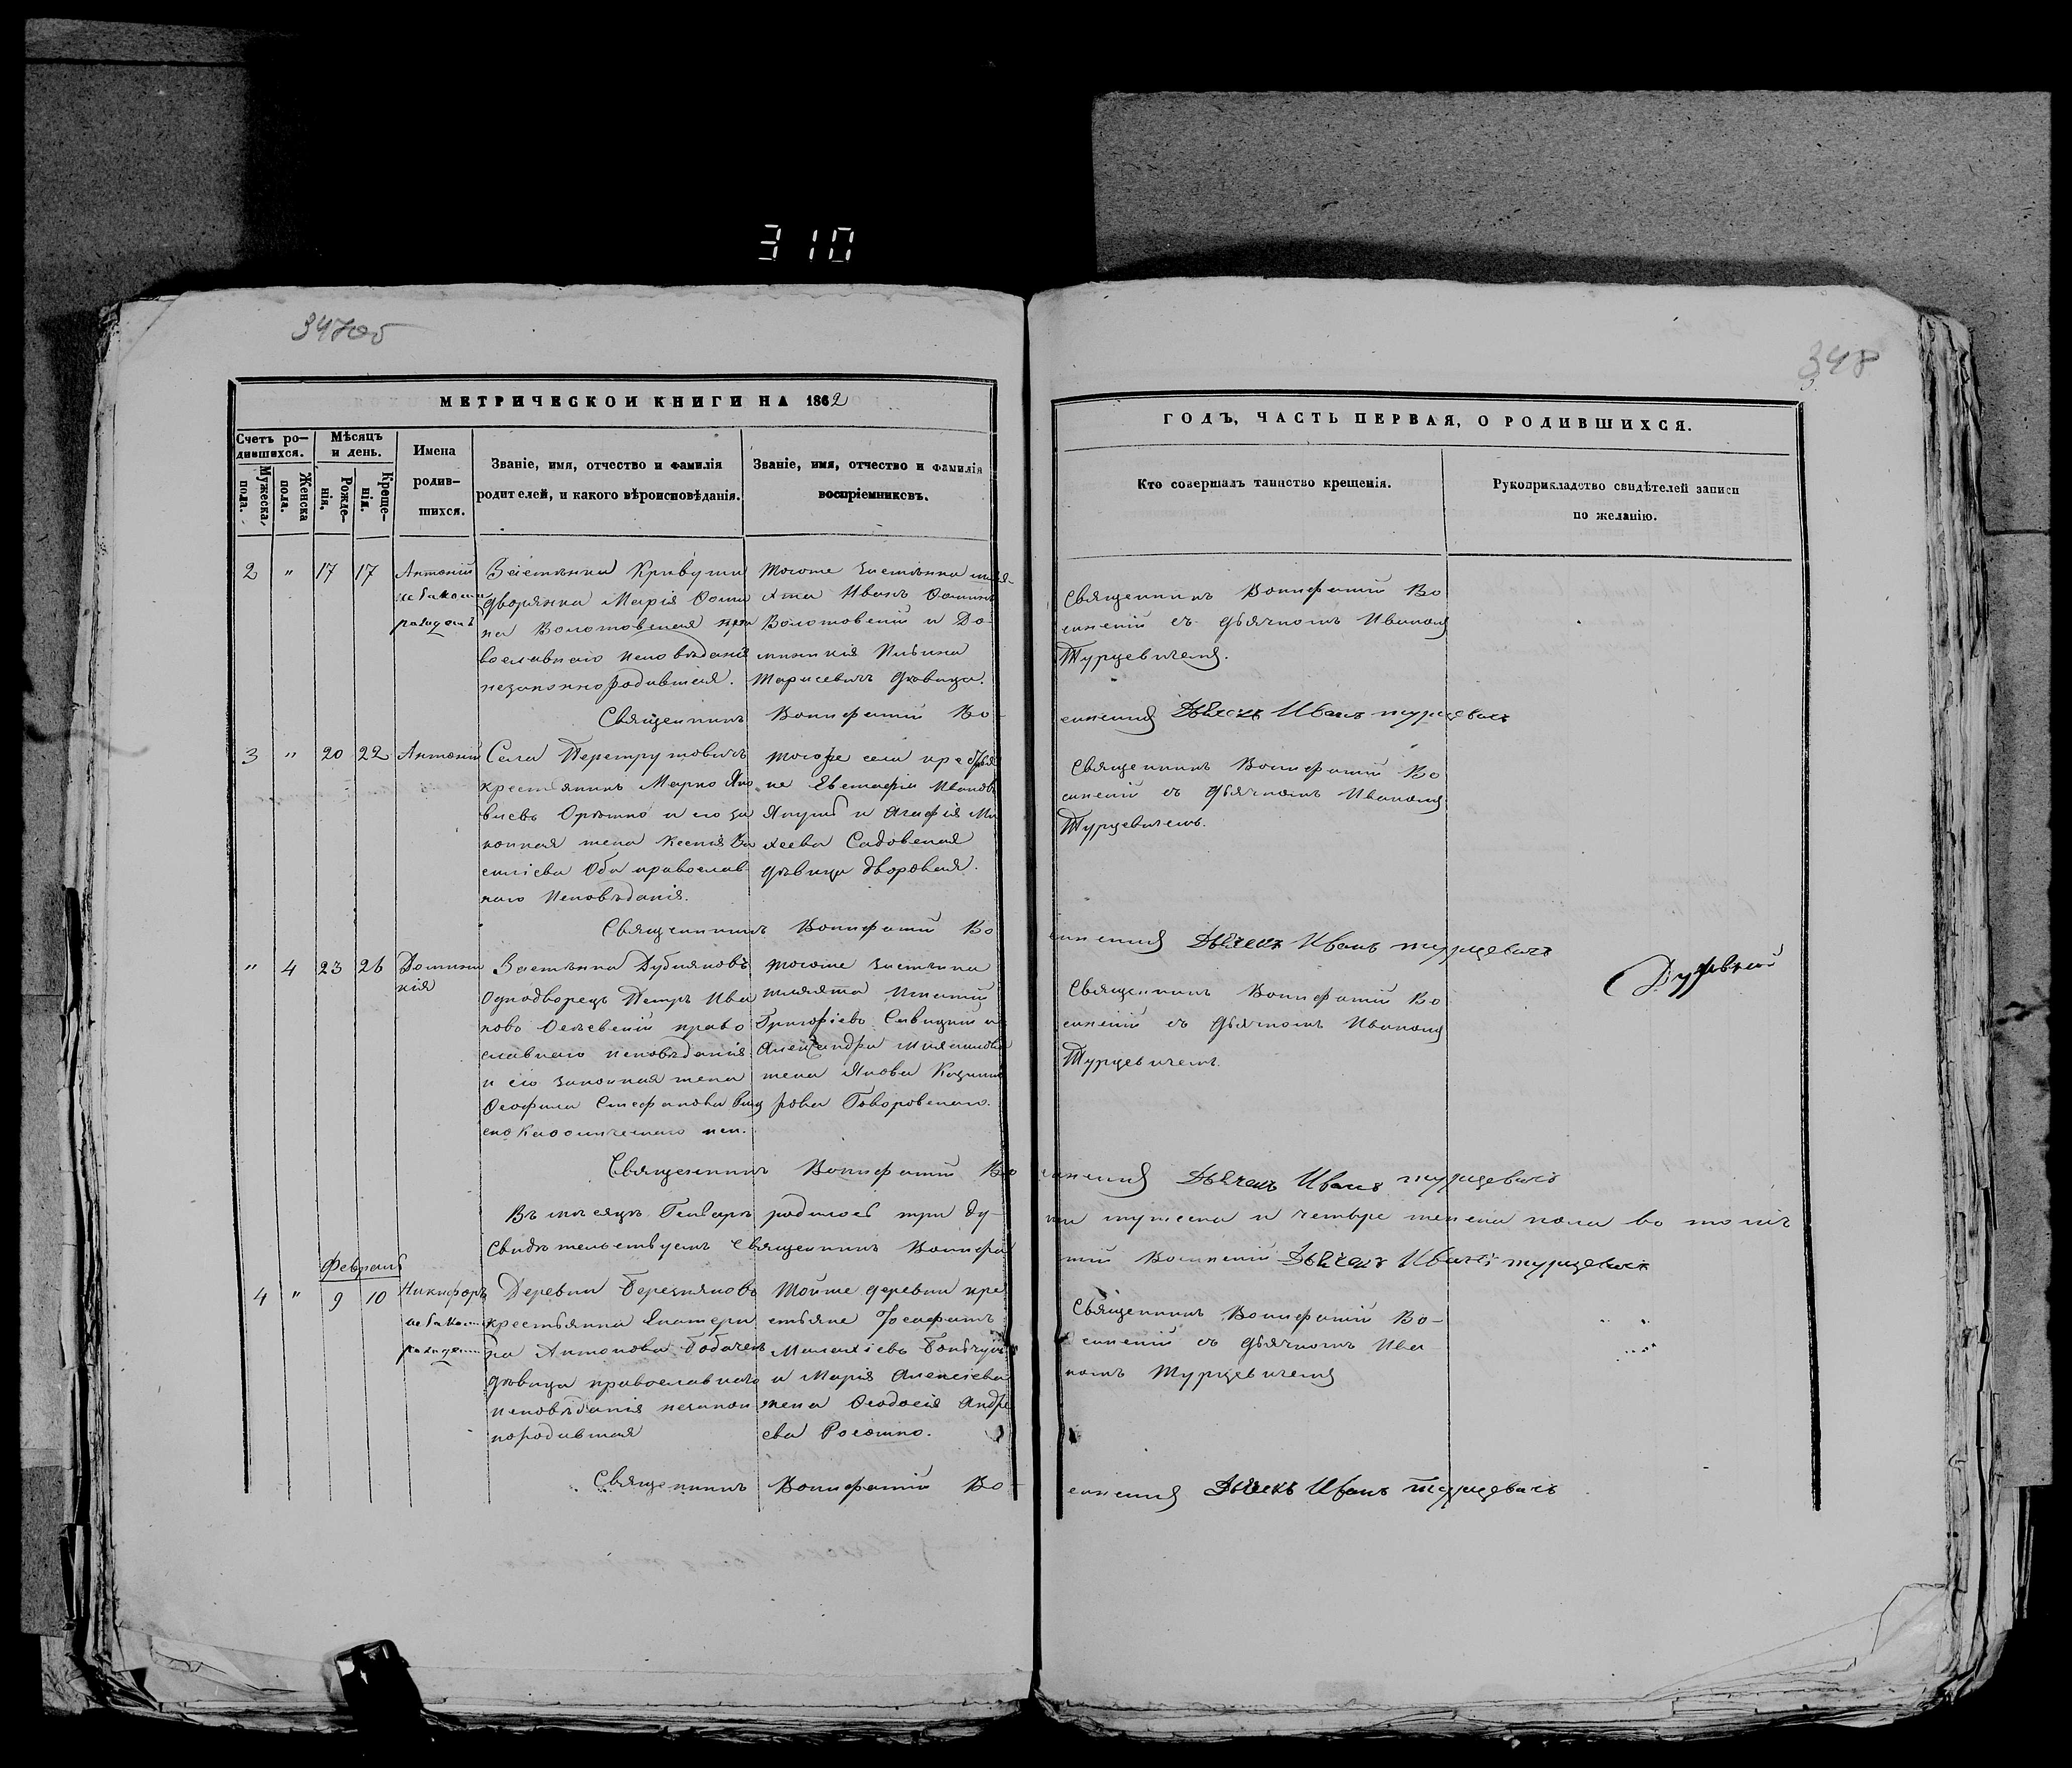 310
347об
348
МЕТРИЧЕСКОИ КНИГИ НА 1862
ГОДЪ, ЧАСТЬ ПЕРВАЯ, О РОДИВШИХСЯ.
Счетъ ро-
дившихся.
Мужеска
пола.
Женска
пола.
Мѣсяцъ
и день.
Рожде-
нія.
Креще-
нія.
Имена
родив-
шихся.
Званіе, имя, отчество и фамилія
родителей, и какого вѣроисповѣданія.
Званіе, имя, отчество и фамилія
воспріемниковъ.
Кто совершалъ таинство крещенія.
Рукоприкладство свидѣтелей записи
по желанію.
2 " 17 17
Антоній
Застѣнка Кривуши
дворянка Марія Фоми
на Волотовская пра
вославнаго исповѣданія
незаконнородившая.
Тогоже застѣнка шля-
хта Иванъ Фоминъ
Волотовскій и До-
миникія
Тарисевичъ дѣвица.
Священникъ Вонифатій Во
синскій съ дьячкомъ Иваномъ
Турцевичемъ.
Священникъ Вонифатій Во-
синскій Дьячекъ Иванъ Турцевичъ
3 " 20 22
Антоній
Села Перетрутовичъ
крестьянинъ Марко Яко
влевъ и его за
конная жена Ксенія Ва
силіева Оба православ
наго Исповѣданія.
Тогоже села крестья
не Евстафій Ивановъ
Якубъ и Агафія Ми
хеева Садовская
дѣвица дворовая.
Священникъ Вонифатій Во
синскій съ дьячкомъ Иваномъ
Турцевичемъ.
Священникъ Вонифатій Во
синскій Дьячекъ Иванъ Турцевичъ
" 4 23 26
Домини
кія
Застѣнка Дубняковъ
Однодворецъ Петръ Ива
новъ право
славнаго исповѣданія
и его законная жена
Феофила Стефанова Рим
ско Католическаго исп.
Тогоже застѣнка
шляхта Игнатій
Григорієвъ Савицкій и
Александра
жена Якова Казими
рова Говоровскаго.
Священникъ Вонифатій Во
синскій съ дьячкомъ Иваномъ
Турцевичемъ.
Священникъ Вонифатій Во
синскій Дьячекъ Иванъ Турцевичъ
Въ мѣсяцѣ Генварѣ родилось три ду-
ши мужеска и четыре женска пола во томъ
Свидѣтельствуемъ Священникъ Вонифа
тій Восинскій Дьячекъ Иванъ Турцевичъ
Февраль
4 " 9 10
Никифоръ
Деревни Березняковъ
крестьянка Екатери
на Антонова Бобачекъ
дѣвица православнаго
исповѣданія незакон
нородившая
Тойже деревни кре
стьяне Іосафатъ
Малахіевъ
и Марія Алексіева
жена Феодосія Андре
ева Рогожко.
Священникъ Вонифатій Во-
синскій съ дьячкомъ Ива
номъ Турцевичемъ
Священникъ Вонифатій Во-
синскій Дьячекъ Иванъ Турцевичъ